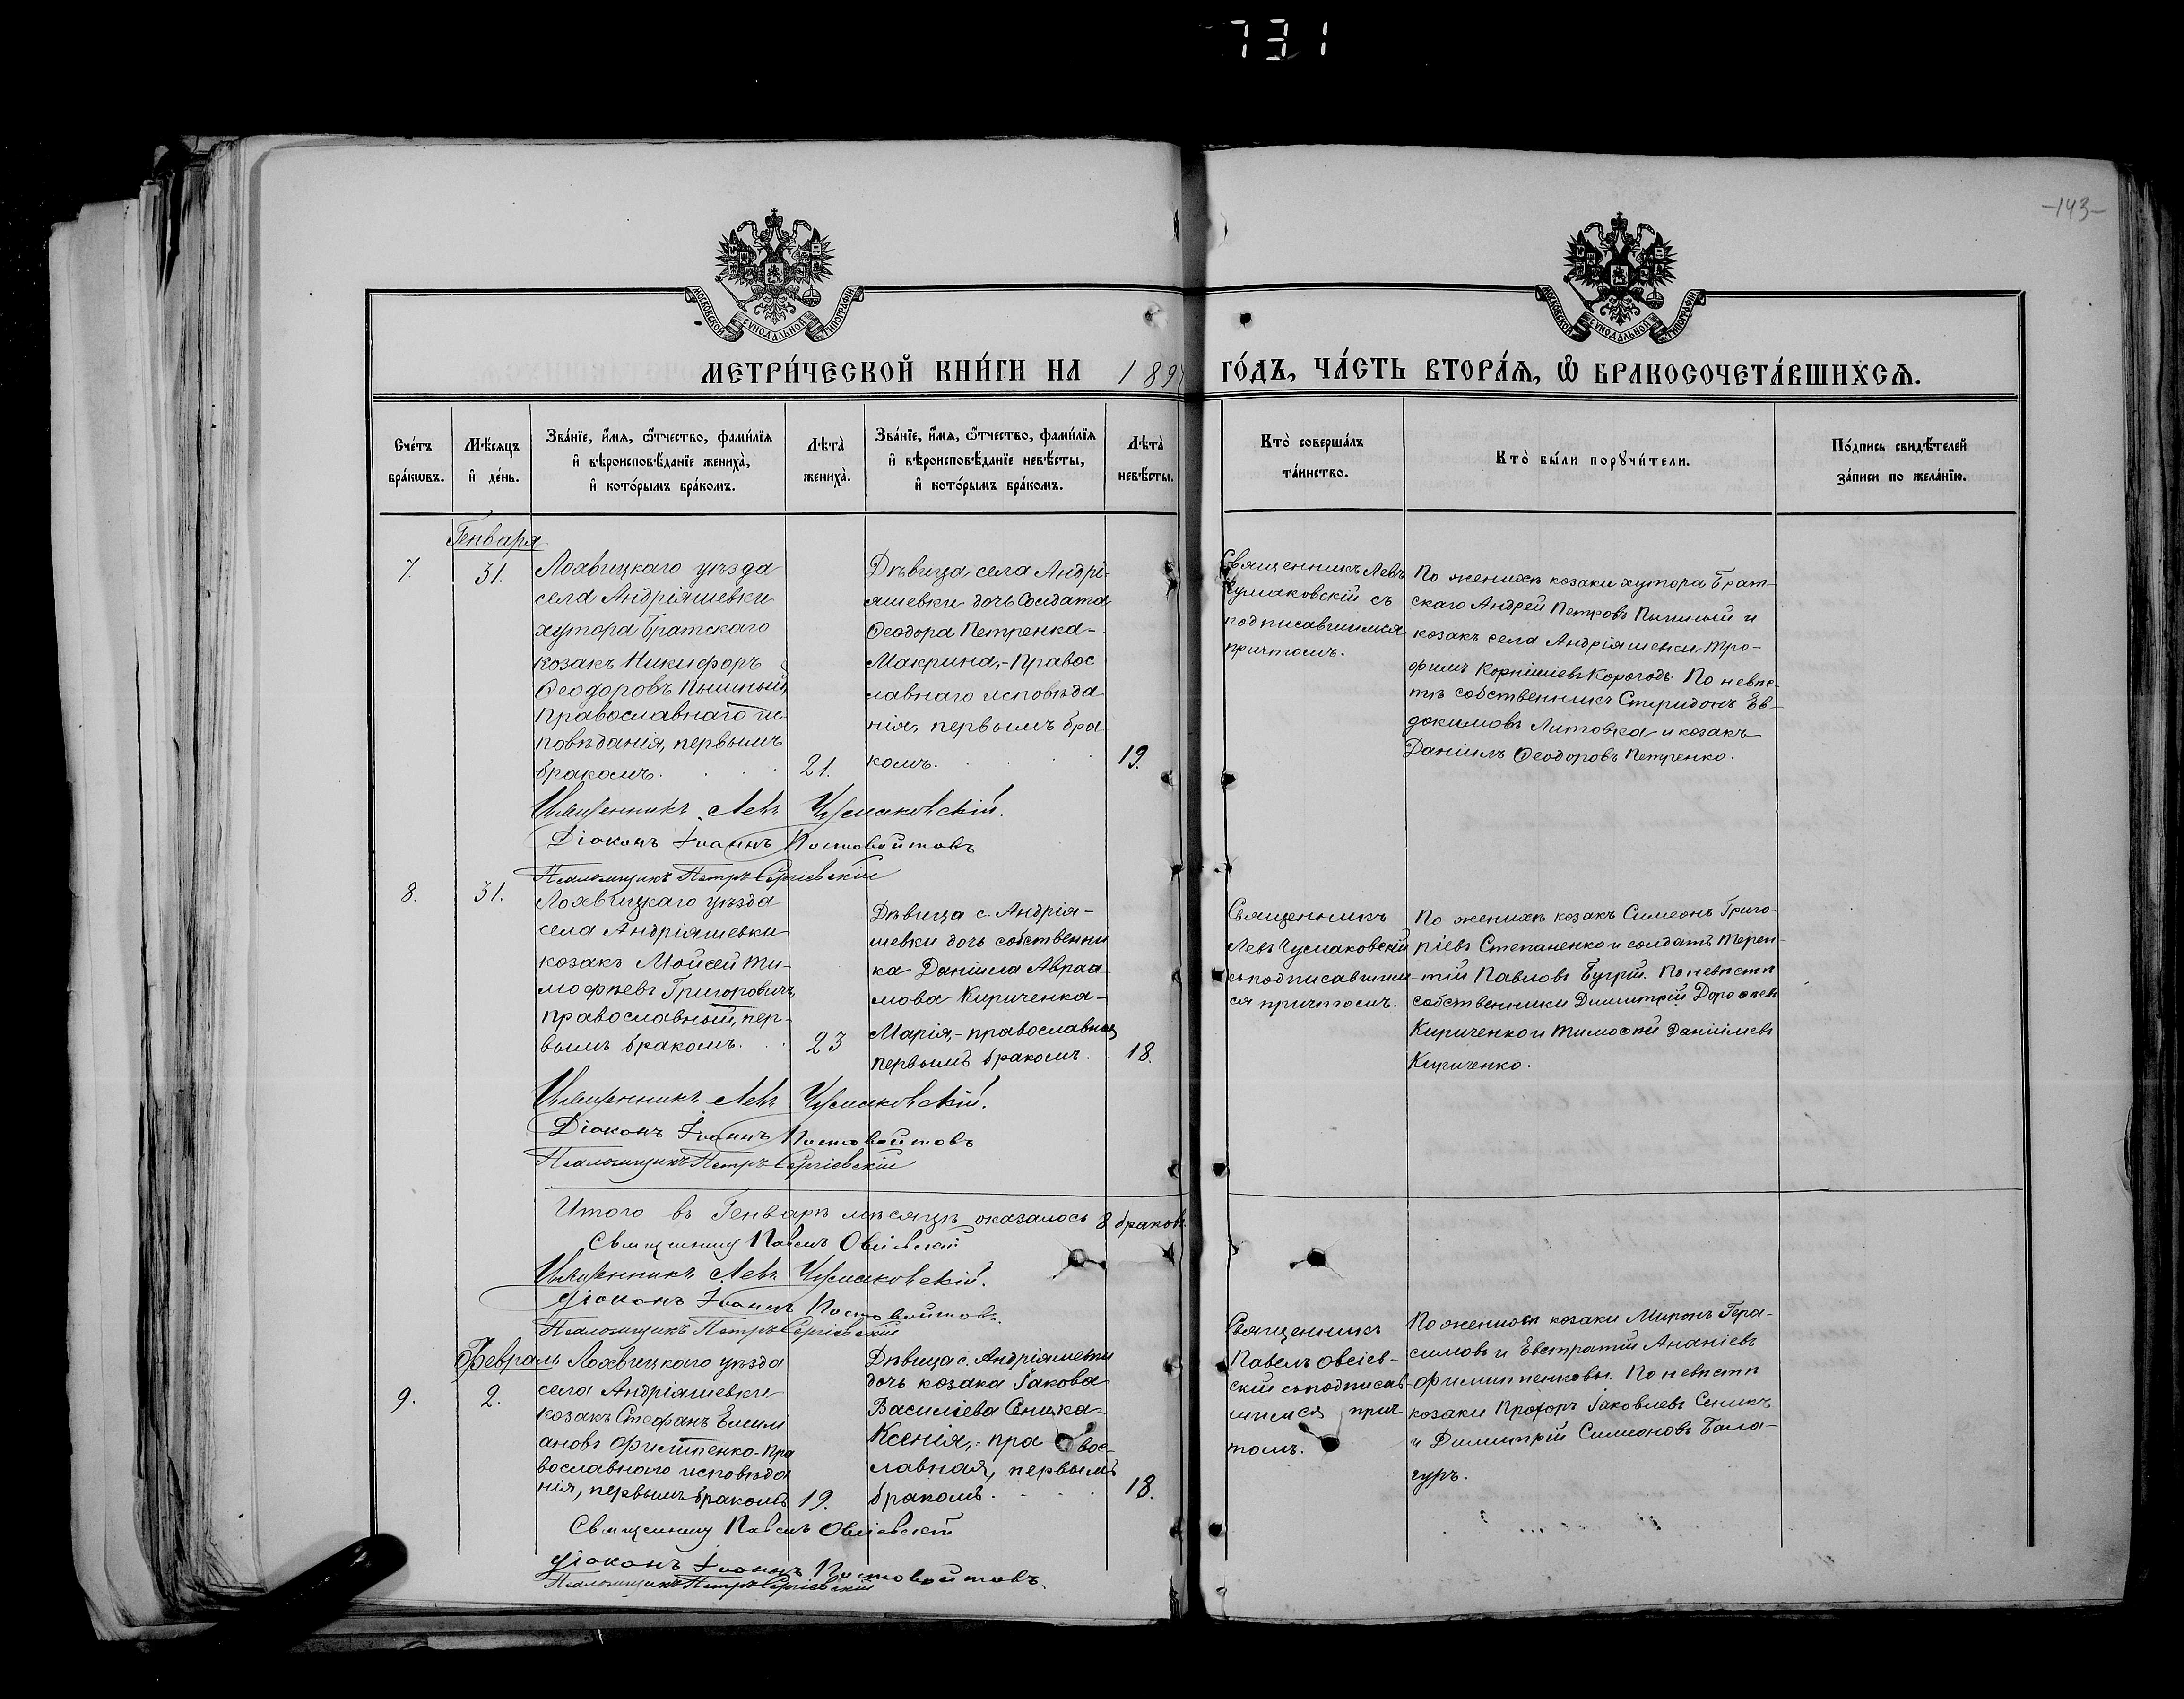 731
-143-
МОСКОВСКОЙ СѴНОДАЛЬНОЙ ТИПОГРАФІИ
МОСКОВСКОЙ СѴНОДАЛЬНОЙ ТИПОГРАФІИ
МЕТРИ́ЧЕСКОЙ КНИ́ГИ НА 189 ГО́ДЪ, ЧА́СТЬ ВТОРА́Ѧ, Ѽ БРАКОСОЧЕТА́ВШИХСѦ.
Сче́тъ
бра́кѡвъ.
Мѣ́сяцъ
и҆ де́нь.
Зва́нїе, и҆́мя, ѻ҆́тчество, фами́лїя
и҆ вѣроисповѣ́данїе жениха̀,
и҆ кото́рымъ бра́комъ.
Лѣта̀
жениха̀.
Зва́нїе, и҆́мя, ѻ҆́тчество, фами́лїя
и҆ вѣроисповѣ́данїе невѣ́сты,
и҆ кото́рымъ бра́комъ.
Лѣта̀
невѣ́сты.
Кто̀ соверша́лъ
та́инство.
Кто̀ бы́ли порꙋчи́тели.
По́дпись свидѣ́телей
за́писи по жела́нїю.
Генваря
7.
31.
Лохвицкаго уѣзда
села Андріяшевки
хутора Братскаго
козакъ Никифоръ
Ѳеодоровъ Пышный,
православнаго ис
повѣданія, первымъ
бракомъ.
21.
Дѣвица села Андрі-
яшевки дочь Солдата
Ѳеодора Петренка-
Макрина,- правос
лавнаго исповѣда
нія, первымъ бра
комъ.
19.
Священникъ Левъ
Чумаковскій съ
подписавшимся
причтомъ.
По женихѣ козаки хутора Брат-
скаго Андрей Петровъ Пышный и
козакъ села Андріяшевки Тро-
фимъ Корниліевъ Корогодъ. По невѣс-
тѣ собственникъ Спиридонъ Ев-
докимовъ Литовка и козакъ
Даніилъ Ѳеодоровъ Петренко.
Священникъ Левъ Чумаковскій.
Діаконъ Іоаннъ Постовойтовъ
Псаломщикъ Петръ Сергіевскій
8.
31.
Лохвицкаго уѣзда
села Андріяшевки
козакъ Моисей Ти-
мофѣевъ Григоровичъ,
православный, пер-
вымъ бракомъ.
23
Дѣвица с. Андрія-
шевки дочь собственни
ка Даніила Авраа-
мова Кириченка-
Марія,- православная,
первымъ бракомъ.
18.
Священникъ
Левъ Чумаковскій
съ подписавшим-
ся причтомъ.
По женихѣ козакъ Симеонъ Григо-
ріевъ Степаненко и солдатъ Терен-
тій Павловъ Бугрій. По невѣстѣ
собственники Димитрій Дороѳеевъ
Кириченко и Тимоѳей Даніиловъ
Кириченко.
Священникъ Левъ Чумаковскій.
Діаконъ Іоаннъ Постовойтовъ
Псаломщикъ Петръ Сергіевскій
Итого въ Генварѣ мѣсяцѣ оказалось 8 браковъ.
Священникъ Павелъ Овсіевскій
Священникъ Левъ Чумаковскій.
Діаконъ Іоаннъ Постовойтовъ.
Псаломщикъ Петръ Сергіевскій
Февраль
9.
2.
Лохвицкаго уѣзда
села Андріяшевки
козакъ Стефанъ Емили
ановъ Филипенко-пра
вославнаго исповѣда
нія, первымъ бракомъ
19.
Дѣвица с. Андріяшевки
дочь козака Іакова
Василіева Сеника-
Ксенія,- пра вос-
лавная, первымъ
бракомъ.
18.
Священникъ
Павелъ Овсіев-
скій съ подписав-
шимся прич
томъ.
По женихѣ козаки Миронъ Гера-
симовъ и Евстратій Ананіевъ
Филиппенковы. По невѣстѣ
козаки Прохоръ Іаковлевъ Сеникъ
и Димитрій Симеоновъ Бала-
гуръ.
Священникъ Павелъ Овсіевскій
Діаконъ Іоаннъ Постовойтовъ.
Псаломщикъ Петръ Сергіевскій